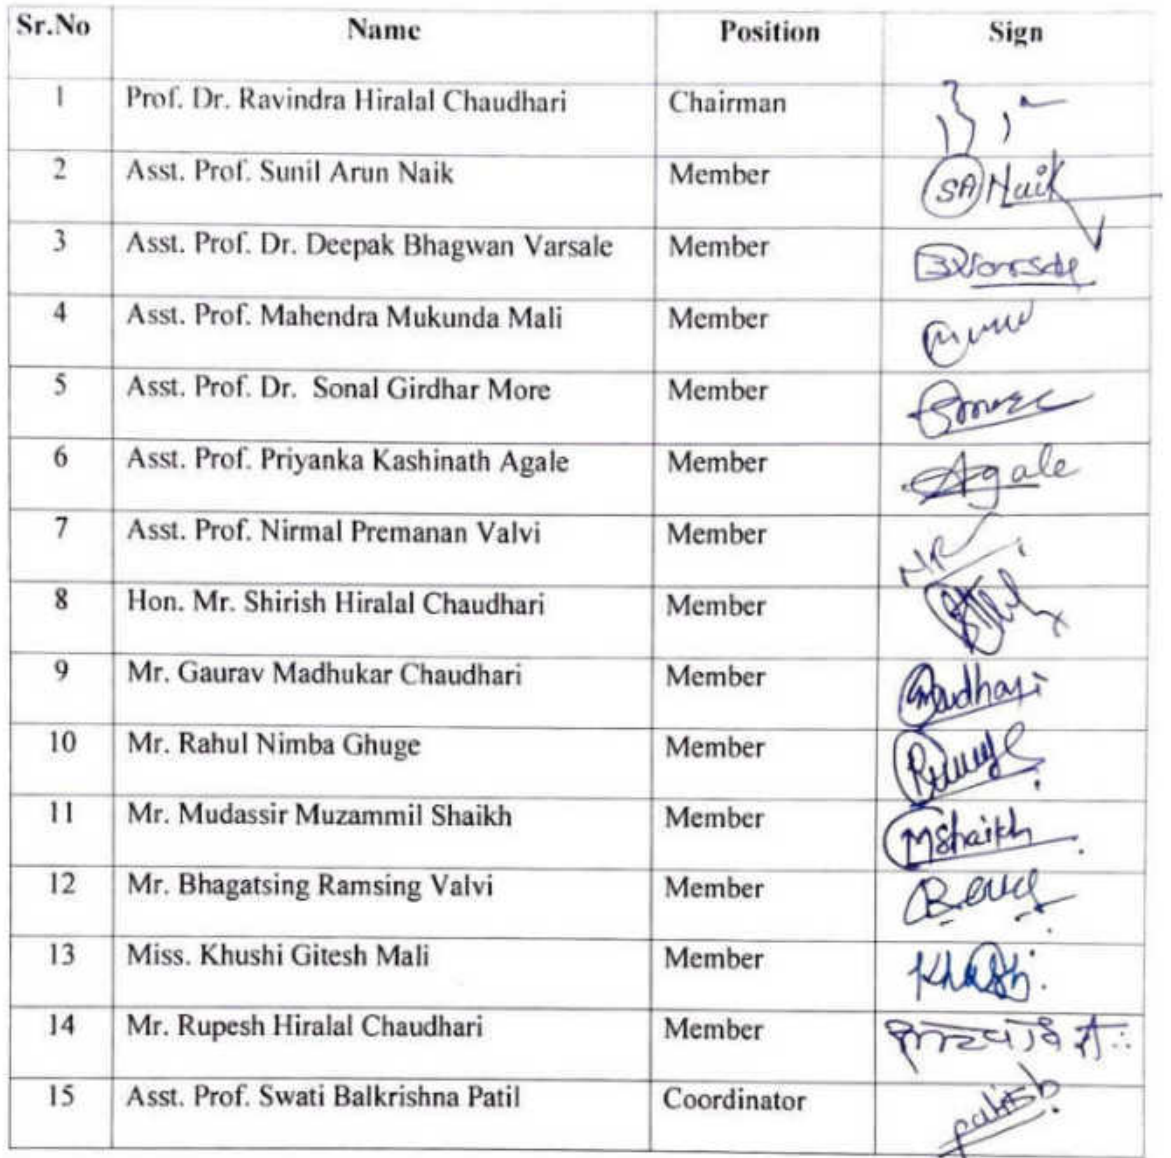 Sr.No Name Position Sign
1 Prof. Dr. Ravindra Hiralal Chaudhari Chairman
2 Asst. Prof. Sunil Arun Naik Member SA Naik
3 Asst. Prof. Dr. Deepak Bhagwan Varsale Member
4 Asst. Prof. Mahendra Mukunda Mali Member
5 Asst. Prof. Dr. Sonal Girdhar More Member
6 Asst. Prof. Priyanka Kashinath Agale Member Agale
7 Asst. Prof. Nirmal Premanan Valvi Member
8 Hon. Mr. Shirish Hiralal Chaudhari Member
9 Mr. Gaurav Madhukar Chaudhari Member
10 Mr. Rahul Nimba Ghuge Member
11 Mr. Mudassir Muzammil Shaikh Member MShaikh
12 Mr. Bhagatsing Ramsing Valvi Member
13 Miss. Khushi Gitesh Mali Member Khushi
14 Mr. Rupesh Hiralal Chaudhari Member
15 Asst. Prof. Swati Balkrishna Patil Coordinator